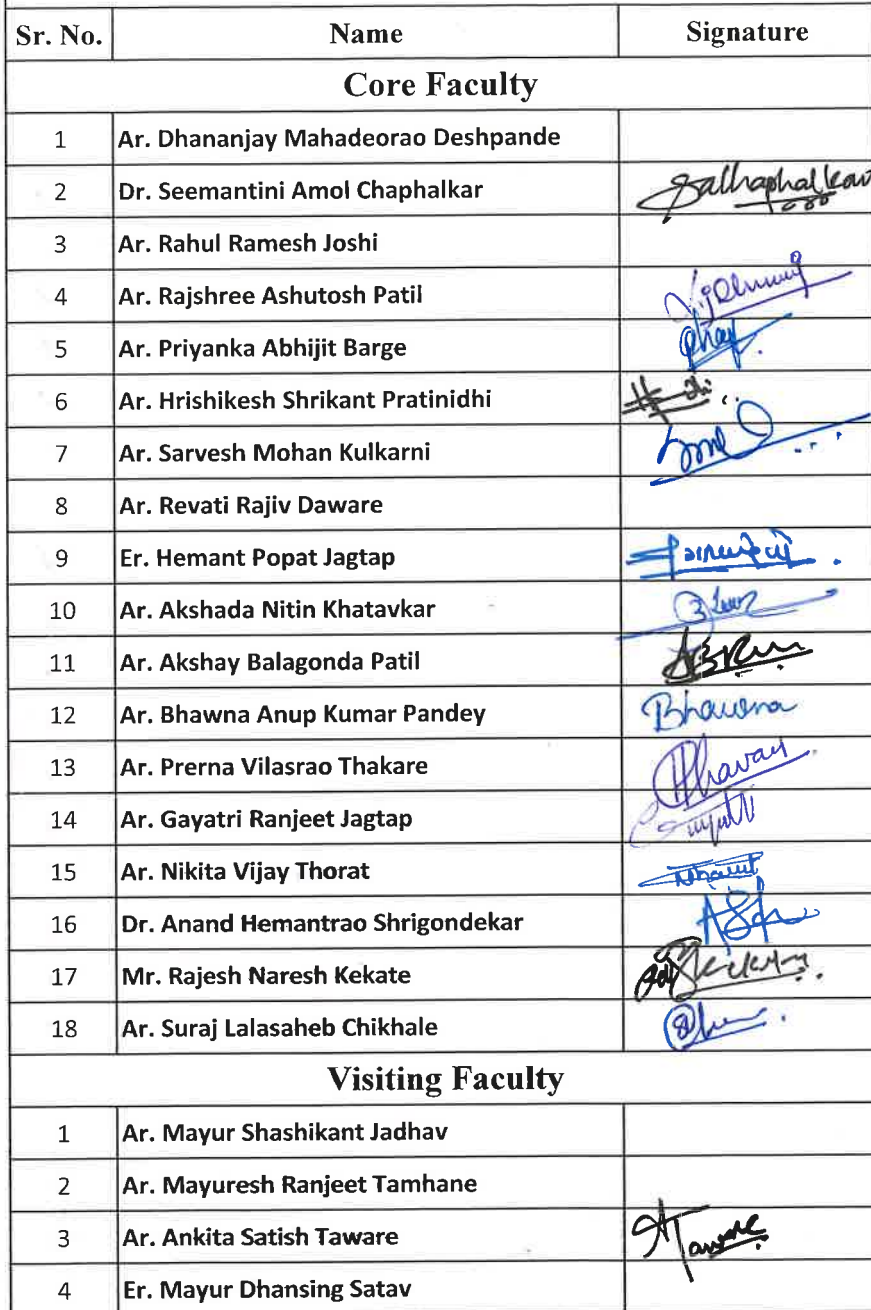 Sr. No. Name Signature
Core Faculty
1 Ar. Dhananjay Mahadeorao Deshpande
2 Dr. Seemantini Amol Chaphalkar
3 Ar. Rahul Ramesh Joshi
4 Ar. Rajshree Ashutosh Patil
5 Ar. Priyanka Abhijit Barge
6 Ar. Hrishikesh Shrikant Pratinidhi
7 Ar. Sarvesh Mohan Kulkarni
8 Ar. Revati Rajiv Daware
9 Er. Hemant Popat Jagtap
10 Ar. Akshada Nitin Khatavkar
11 Ar. Akshay Balagonda Patil
12 Ar. Bhawna Anup Kumar Pandey Bhawna
13 Ar. Prerna Vilasrao Thakare
14 Ar. Gayatri Ranjeet Jagtap
15 Ar. Nikita Vijay Thorat
16 Dr. Anand Hemantrao Shrigondekar
17 Mr. Rajesh Naresh Kekate
18 Ar. Suraj Lalasaheb Chikhale
Visiting Faculty
1 Ar. Mayur Shashikant Jadhav
2 Ar. Mayuresh Ranjeet Tamhane
3 Ar. Ankita Satish Taware
4 Er. Mayur Dhansing Satav